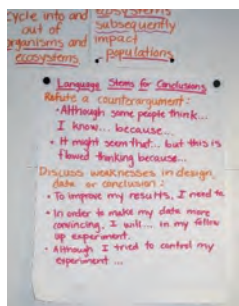 cycle into and
out of
organisms and
ecosystems
ecosystems
subsequently
impact
populations
Language Stems for Conclusions
Refute a counterargument:
• Although some people think...
I know... because...
• It might seem that... but this is
flawed thinking because...
Discuss weaknesses in design,
data or conclusion:
• To improve my results, I need to
• In order to make my data more
convincing, I will... in my follow
up experiment.
• Although I tried to control my
experiment ...